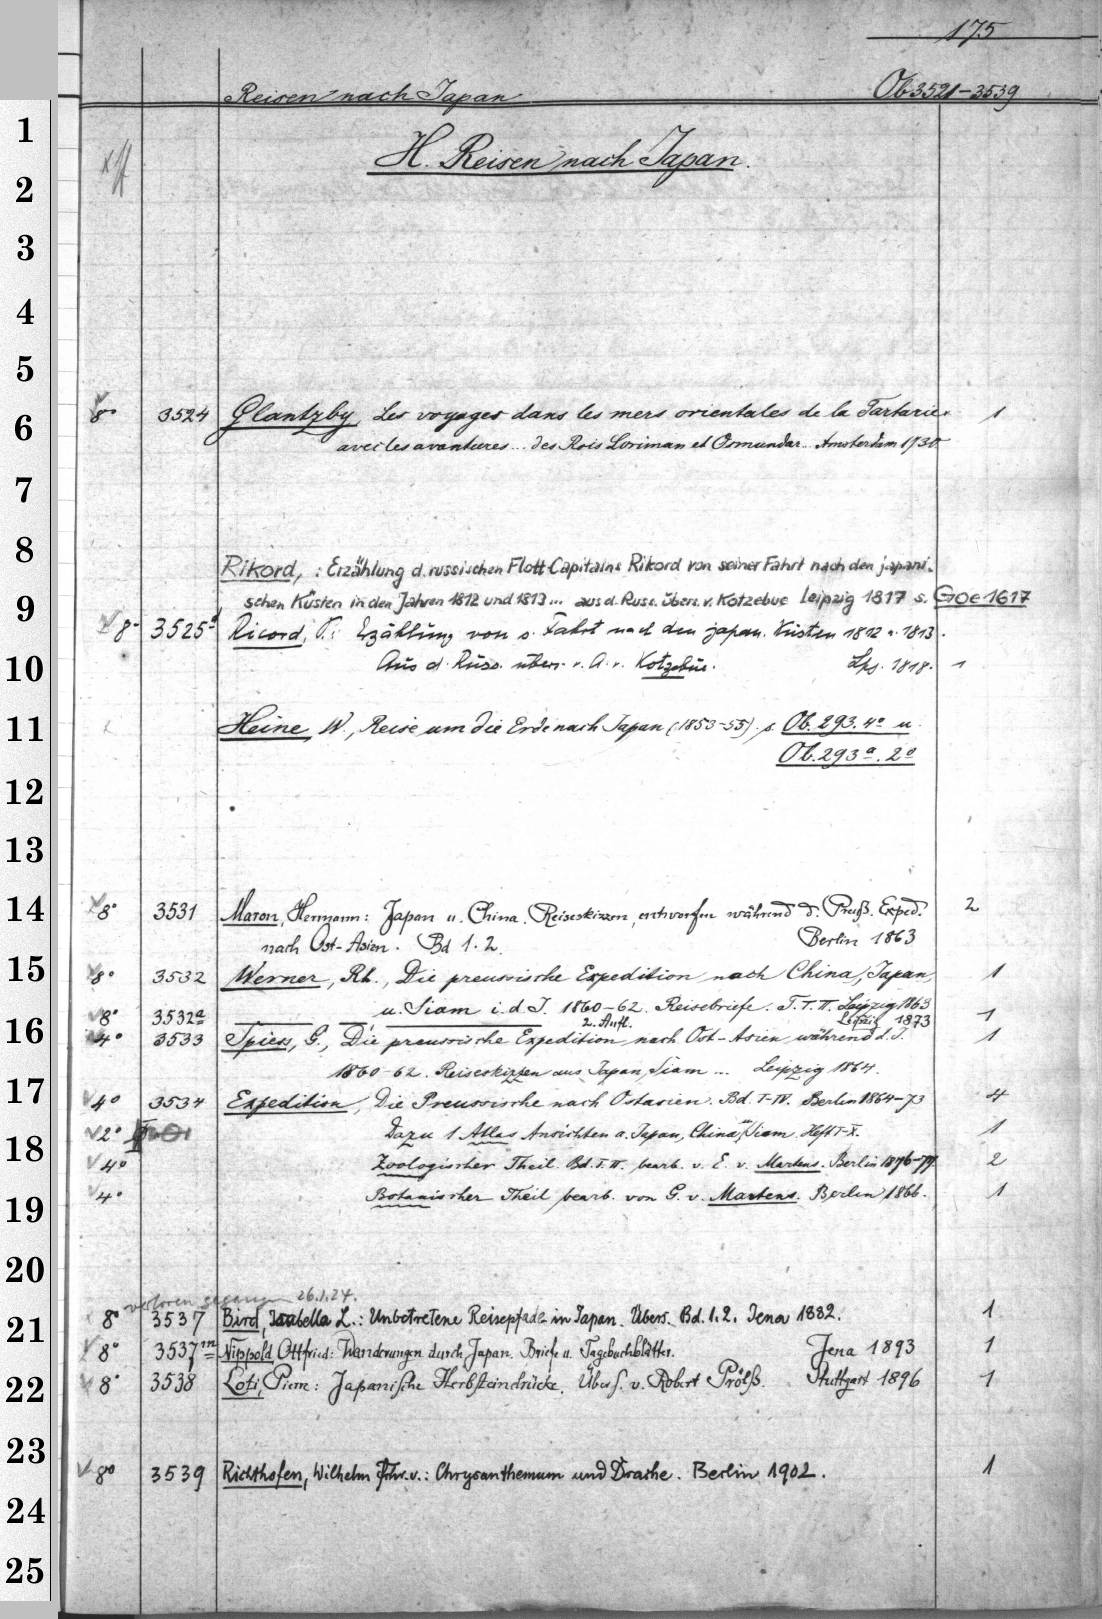 175
Reisen nach Japan Ob 3521-3539
1
H. Reisen nach Japan.
2
3
4
5
8° 3524 Glantzby, Les voyages dans les mers orientales de la Tartarie. 1
6
avec les avantures... des Rois Loriman et Osmundar. Amsterdam 1730
7
8
Rikord, : Erzählung d. russischen Flott-Capitains Rikord von seiner Fahrt nach den japani-
9
schen Küsten in den Jahren 1812 und 1813... aus d. Russ. übers. v. Kotzebue Leipzig 1817 s. Goe 1617
8° 3525d Ricord, P.: Erzählung von s. Fahrt nach den japan. Küsten 1812 u. 1813.
10
Aus d. Russ. übers. v. A. v. Kotzebue. Lps. 1818. 1
11
Heine, W., Reise um die Erde nach Japan (1853-55). s. Ob. 293. 4° u.
Ob. 293a. 2°
12
13
14
8° 3531 Maron, Hermann: Japan u. China. Reiseskizzen, entworfen während d. Preuß. Exped. 2
nach Ost-Asien. Bd 1. 2. Berlin 1863
15
8° 3532 Werner, Rh., Die preussische Expedition nach China, Japan, 1
u. Siam i. d. J. 1860-62. Reisebriefe. T. I. II. Leipzig 1863
8° 3532a 2. Aufl. Leipzig 1873 1
16
4° 3533 Spiess, G., Die preussische Expedition nach Ost-Asien während d. J. 1
1860-62. Reiseskizzen aus Japan, Siam ... Leipzig 1864.
17
4° 3534 Expedition, Die Preussische nach Ostasien. Bd. I-IV. Berlin 1864-73 4
2° Dazu 1 Atlas Ansichten a. Japan, China, Siam. Heft I-X. 1
18
4° Zoologischer Theil. Bd. I. II. bearb. v. E. v. Martens. Berlin 1876-77. 2
4° Botanischer Theil bearb. von G. v. Martens. Berlin 1866. 1
19
20
verloren gegangen 26.1.24.
21
8° 3537 Bird, Isabella L.: Unbetretene Reisepfade in Japan. Übers. Bd. 1.2. Jena 1882. 1
8° 3537m Nippold, Ottfried: Wanderungen durch Japan. Briefe u. Tagebuchblätter. Jena 1893 1
22
8° 3538 Loti, Pierre: Japanische Herbsteindrücke. Übers. v. Robert Prölß. Stuttgart 1896 1
23
8° 3539 Richthofen, Wilhelm Frhr. v.: Chrysanthemum und Drache. Berlin 1902. 1
24
25